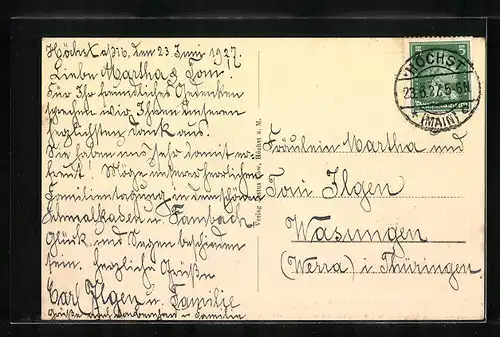 Höchst a/M, den 23. Juni 1927.
Liebe Martha & Toni.
Für Ihr freundliches Gedenken
sprechen wir Ihnen unseren
herzlichsten Dank aus.
Sie haben uns sehr damit er-
freut! Möge unserer herrlichen
Familientagung in dem schönen
Schmalkalden u. Fambach
Glück und Segen beschieden
sein. Herzliche Grüße
Carl Ilgen u. Familie
Grüße auch u. Familie
Verlag Höchst a. M.
5
HÖCHST
23.6.27. 5-6N
* (MAIN) c
Fräulein Martha und
Toni Ilgen
Wasungen
(Werra) i. Thüringen.